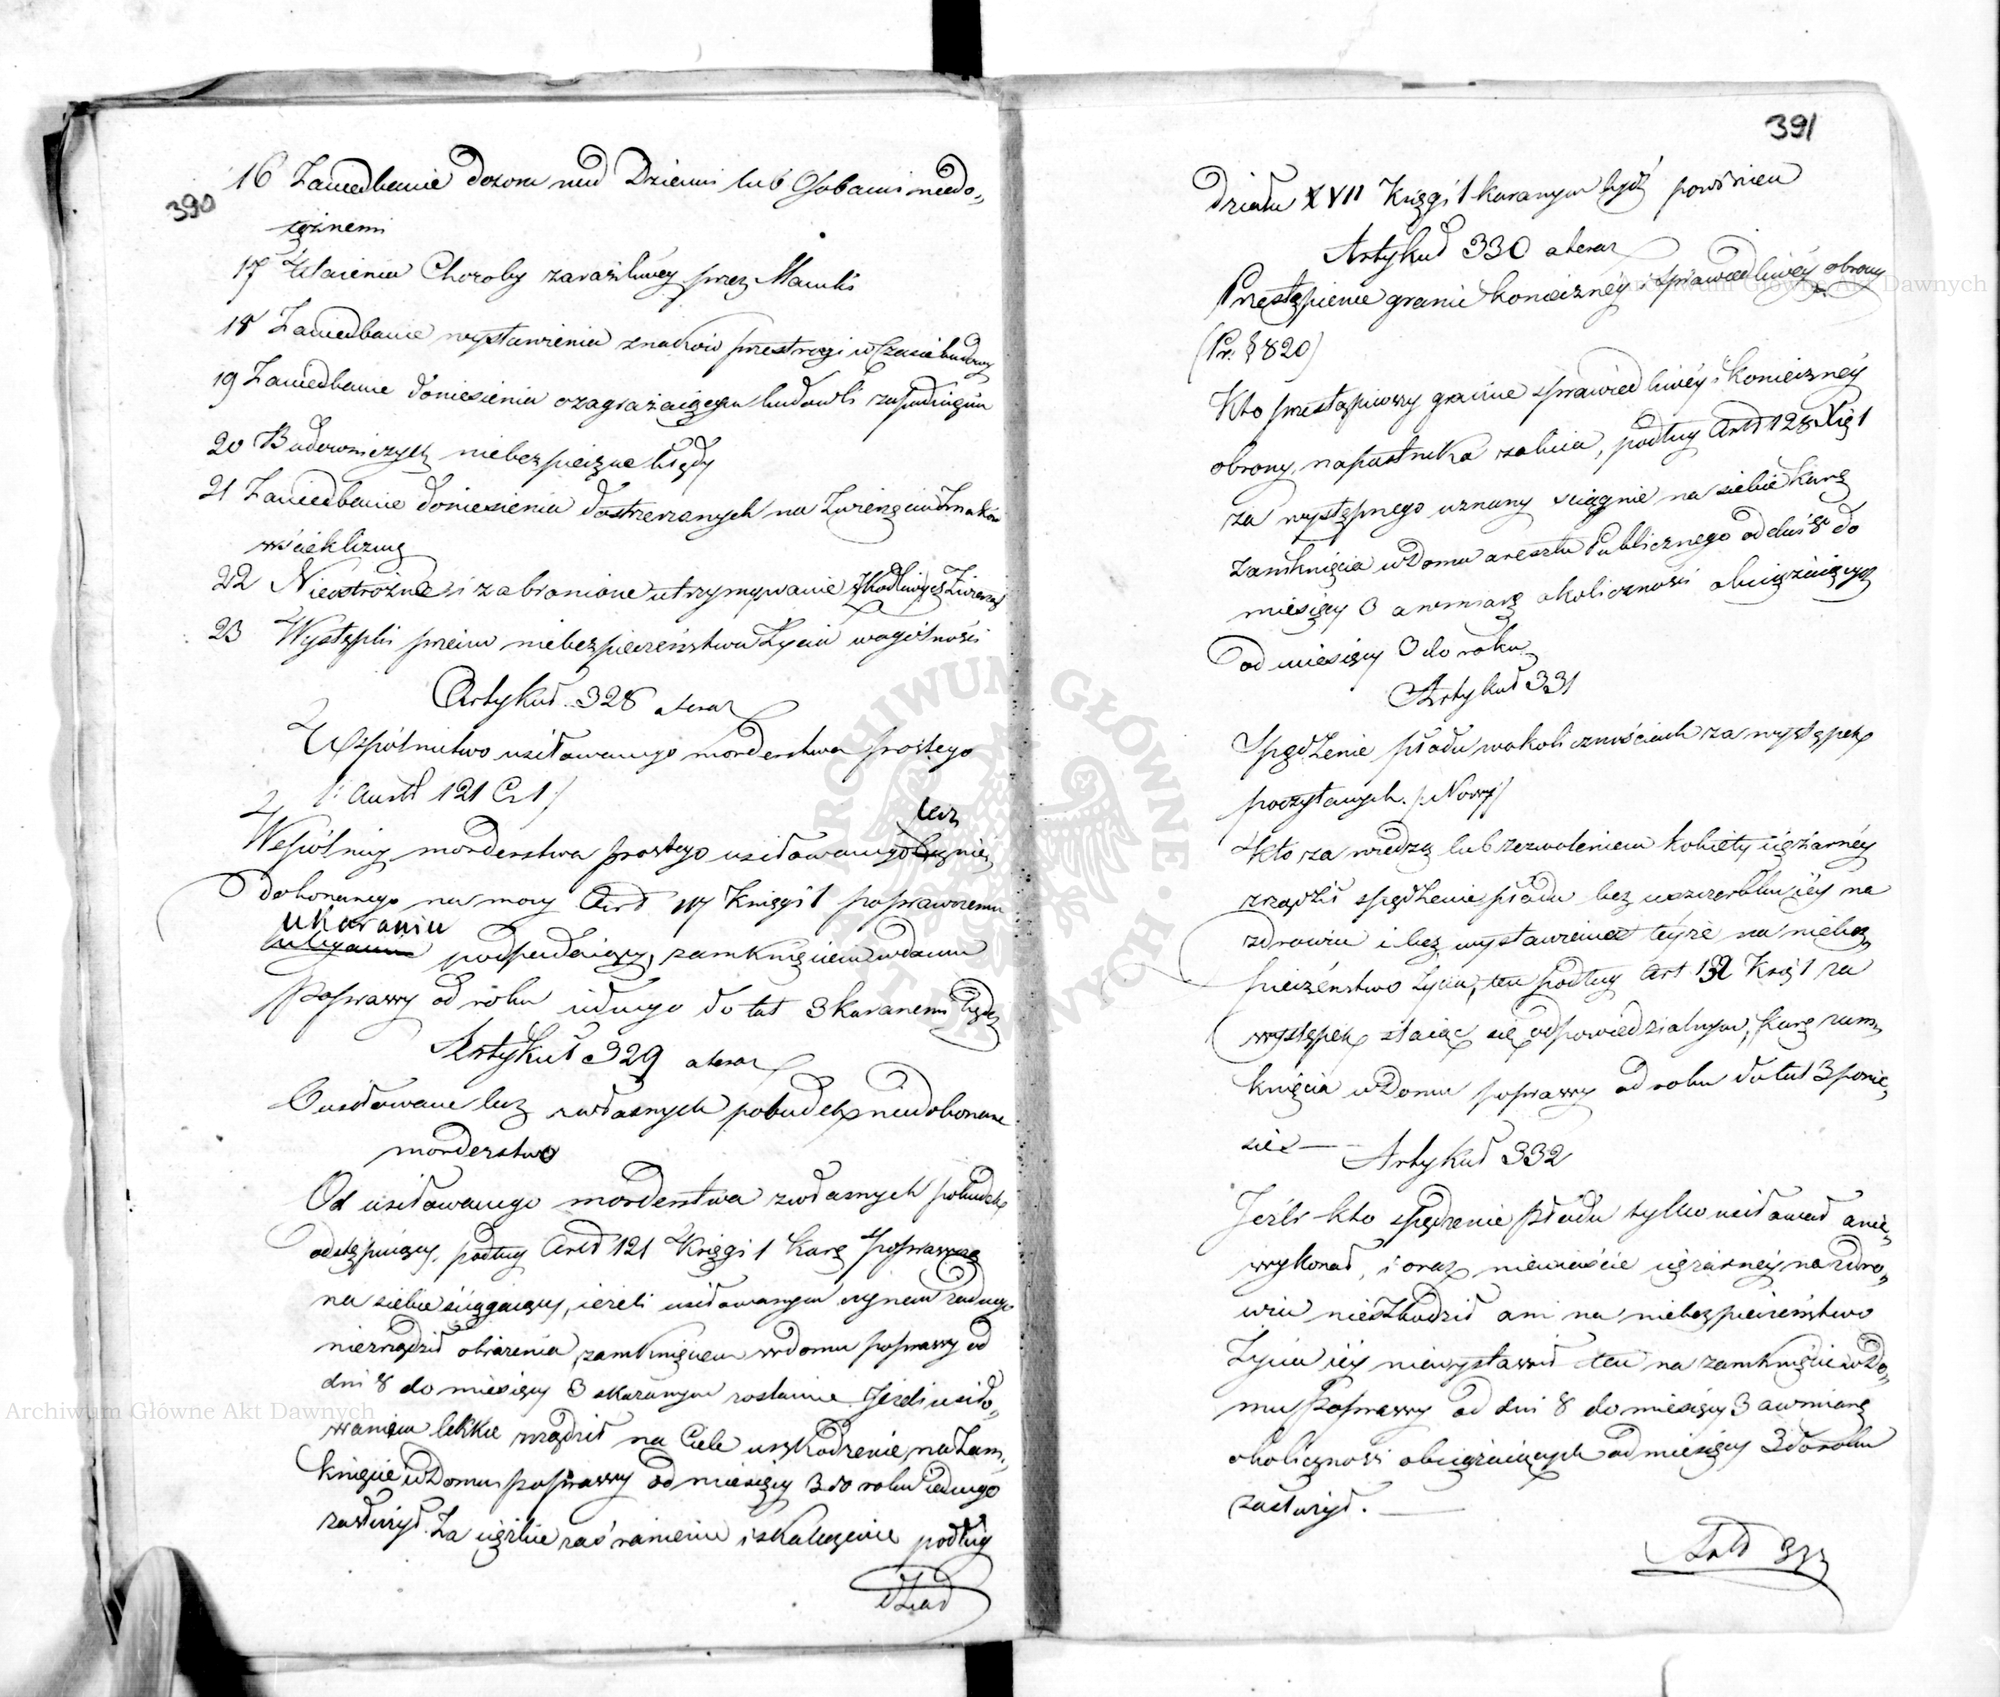 390
16 Zaniedbanie dozoru nad Dziećmi lub Osobami niedo-
łężnemi
17 Utaienia Choroby zaraźliwéy przez Mamki
18 Zaniedbanie wystawienia znaków przestrogi w Czasie budowy
19 Zaniedbanie doniesienia o zagrażaiącym budowli zapadnięciu
20 Budowniczych niebezpieczne błędy
21 Zaniedbanie doniesienia dostrzeżonych na Zwierzęciu Znaków
wścieklizny
22 Nieostrożne i zabronione utrzymywanie szkodliwych Zwierząt
23 Występki przeciw niebezpieczeństwu Życia w ogólności
Artykuł 328
Wspólnictwo usiłowanego morderstwa prostego
/: Art 121 Cz 1 /
Wspólnicy morderstwa prostego usiłowanego lecz nie
dokonanego na mocy Art 117 Księgi 1 poprawczemu
ukaraniu
podpadaiący, zamknięciem w domu
Poprawy od roku iednego do lat 3 karanemi będą
Artykuł 329
O usiłowane lecz z własnych pobudek niedokonane
morderstwo
Od usiłowanego morderstwa z własnych pobudek
odstępuiący, podług Art 121 Księgi 1 karę Poprawczą
na siebie ściągaiący, ieżeli usiłowanym czynem żadnego
niezrządził obrażenia, zamknięciem w domu poprawy od
dni 8 do miesięcy 3 skazanym zostanie. Jeżeli usiło-
waniem lekkie zrządził na Ciele uszkodzenie, na Zam-
knięcie w Domu poprawy od miesięcy 3 do roku iednego
zasłużył. Za ciężkie zaś ranienie i skaleczenie podług
Dział
391
Działu XVII Księgi 1 karanym bydź powinien
Artykuł 330
Przestąpienie granic koniecznéy i sprawiedliwéy obrony
(Pr. § 820)
Kto przestąpiwszy granice sprawiedliwéy i koniecznéy
obrony, napastnika zabiia, podług Art 128 Xię 1
za występnego uznany ściągnie na siebie karę
zamknięcia w Domu aresztu Publicznego od dni 8 do
miesięcy 3 a w miarę okoliczności obciążaiących
od miesięcy 3 do roku
Artykuł 331
Spędzenie płodu w okolicznościach za występek
poczytanych. /: Nowy /
Kto za wiedzą lub zezwoleniem kobiety ciężarnéy
zrządził spędzenie płodu bez uszczerbku iéy na
zdrowiu i bez wystawienia teyże na niebez-
pieczeństwo Życia, ten podług Art 132 Księ 1 za
występek staiąc się odpowiedzialnym, karę zam-
knięcia w Domu poprawy od roku do lat 3 ponie-
sie. —
Artykuł 332
Jeżli kto spędzenie Płodu tylko usiłował a nie
wykonał, i oraz niewieście ciężarnéy na zdro-
wiu nieszkodził ani na niebezpieczeństwo
Życia iéy niewystawił ten na zamknięcie w Do-
mu Poprawy od dni 8 do miesięcy 3 a w miarę
okoliczności obciążaiących od miesięcy 3 do roku
zasłużył. —
Artł 333
Archiwum Główne Akt Dawnych
Archiwum Główne Akt Dawnych
ARCHIWUM GŁÓWNE AKT DAWNYCH